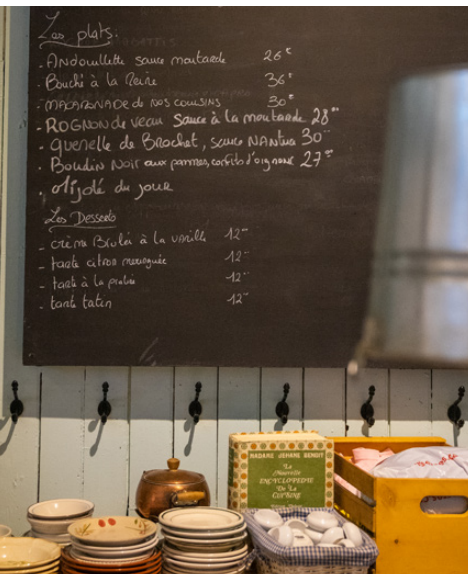 Les plats:
- Andouillette sauce moutarde 26€
- Bouché à la Reine 36€
- MACARONADE de nos cousins 30€
- ROGNON de veau Sauce à la moutarde 28
- quenelle de Brochet, sauce NANtua 30
- Boudin Noir aux pommes, confits d'oignons 27
- Mijoté du jour
Les Desserts
- crème Brulée à la vanille 12
- tarte citron meringuée 12
- tarte à la praline 12
- tarte tatin 12
MADAME JEHANE BENOIT
La
Nouvelle
ENCYCLOPEDIE
De La
CUISINE